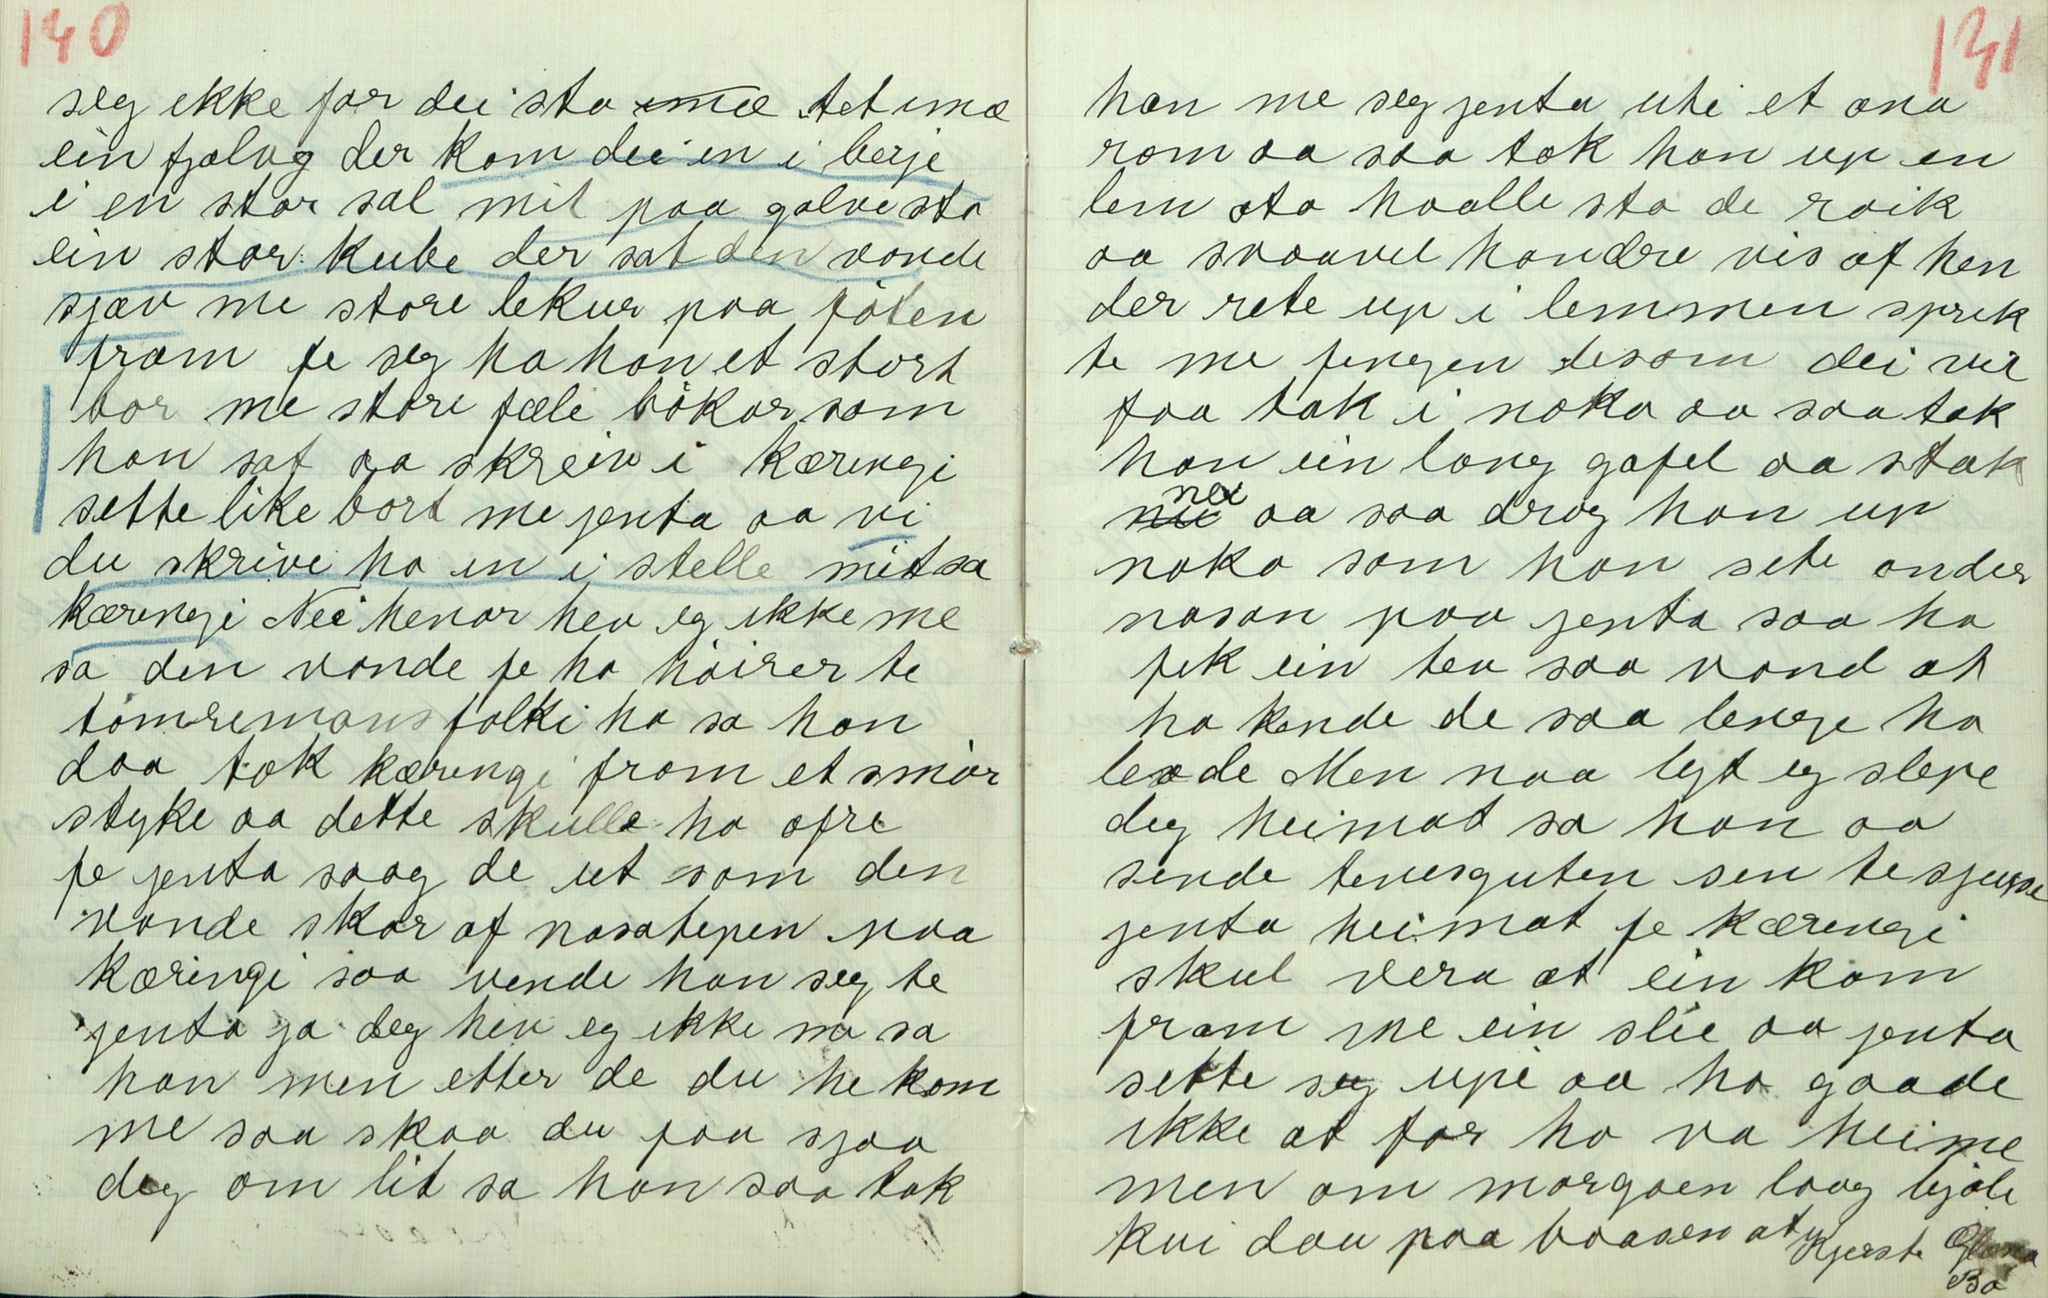 140
seg ikke for dei sto imæ tet imæ
ein fjølvg der kom dei in i berje
i en stor sal mit paa golve sto
ein stor kube der sat den vonde
sjæv me store lekur paa föten
fram fe seg ha han et stort
bor me store fæle bökar som
han sat aa skreiv i kæringi
sette like bort me jenta aa vi
du skrive ho in i stelle mit sa
kæringi Nei henar hev eg ikke me
sa den vonde fe ho höirer te
tömremans folki ho sa han
daa tok kæringi fram et smör
styke aa dette skulle ho ofre
fe jenta saag de ut som den
vonde skar af nasatepen paa
kæringi saa vende han seg te
jenta ja deg hev eg ikke no sa
han men etter de du he kom
me saa skaa du faa sjaa
deg om lit sa han saa tok
141
han me seg jenta uti et ana
rom aa saa tok han up en
lem ota haalle sto de roik
aa svaavel hondre vis af hen
der rete up i lemmen sprik
te me fingen desom dei vil
faa tak i noko aa saa tok
han ein lang gafel aa stak
nei aa saa drog han up
noko som han sete onder
nason paa jenta saa ho
fek ein tev saa vond at
ho kende de saa lenge ho
levde Men naa lyt eg slepe
deg heimat sa han aa
sende tenesguten sin te sjusse
jenta heimat fe kæringi
skul vera at ein kom
fram me ein slie aa jenta
sette seg upi aa ho gaade
ikke at for ho va heime
men om morgaen laag bjöle
kui dau paa baasen at Kjerste
Bö